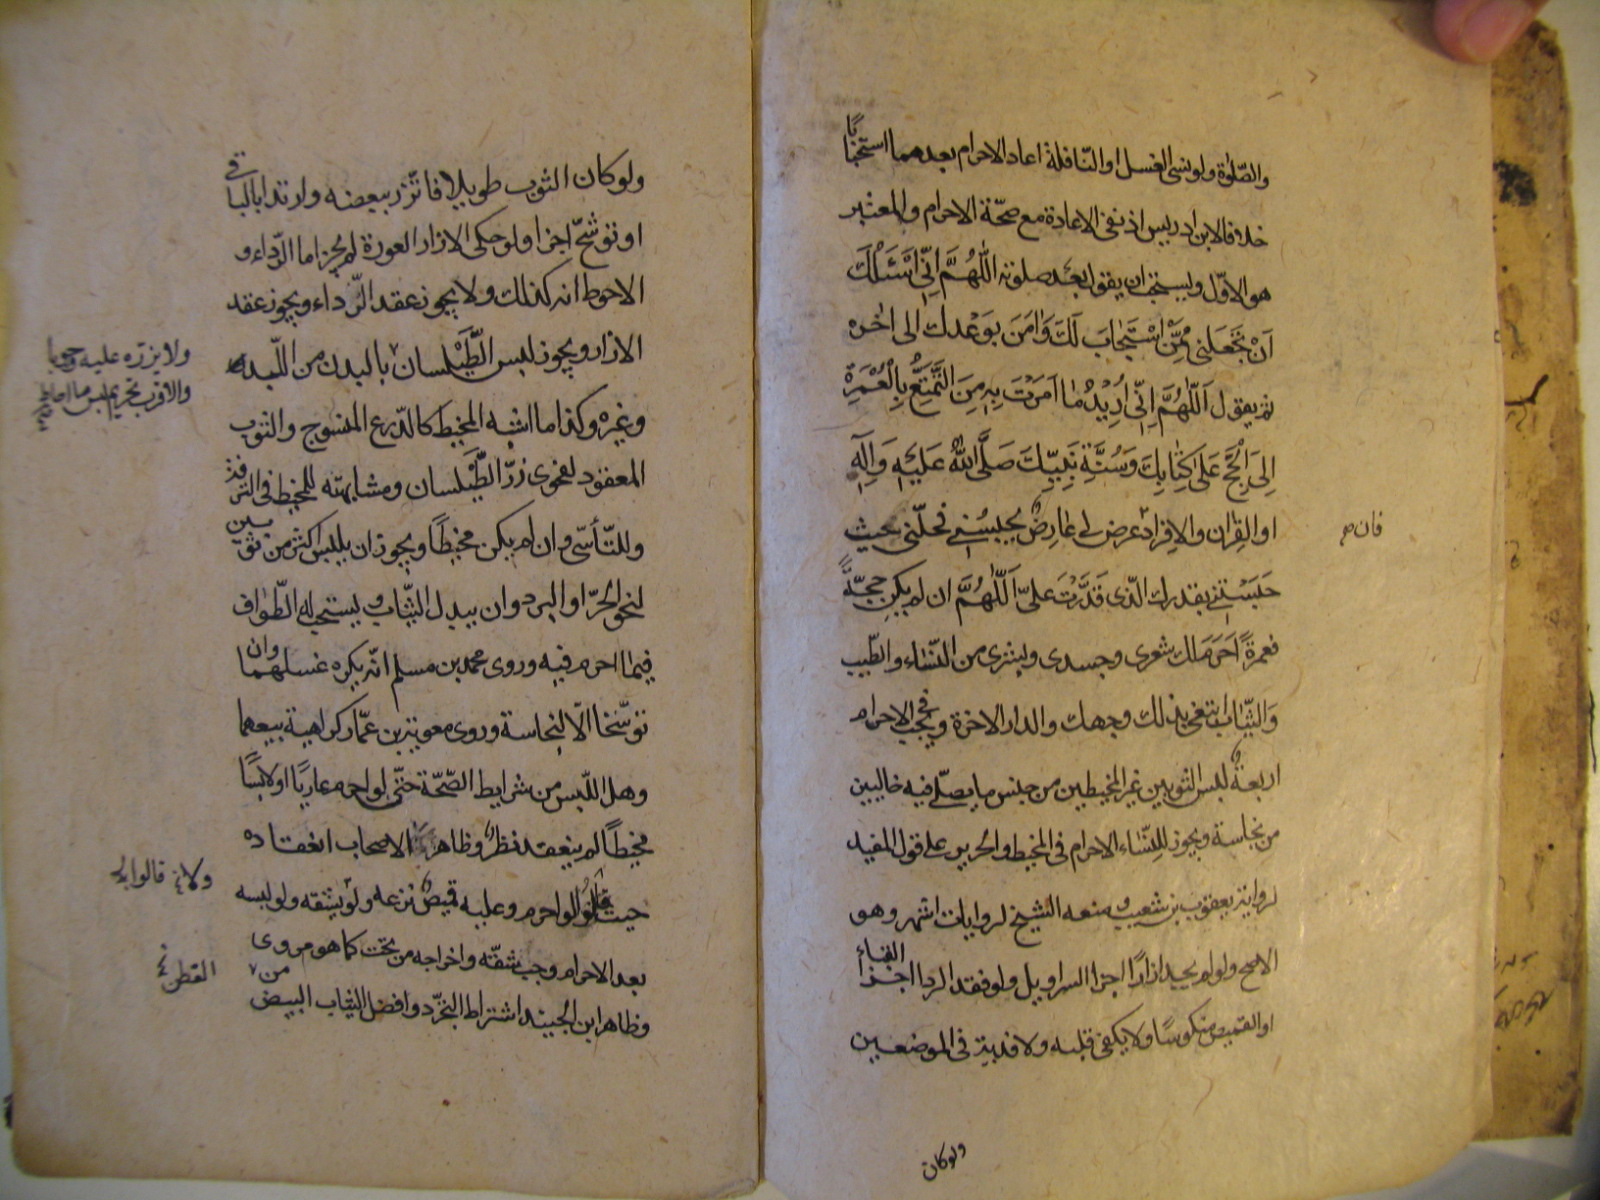 والصلوة ولو نسى الغسل او النّافلة اعاد الاحرام بعدهما استحبابًا
خلافا لابن ادريس اذ نفى الاعادة مع صحّة الاحرام والمعتبر
هو الاوّل ويستحب ان يقول بعد صلوته اللّٰهُمَّ اِنّى اَسْئَلُكَ
اَنْ تَجْعَلَنى مِمَّنْ اسْتَجٰابَ لَكَ وَاٰمَنَ بِوَعْدِكَ الى اٰخره
ثم يقول اَللّٰهُمَّ اِنّى اُرِيْدُ مٰا اَمَرْتَ بِهِ مِنَ التَّمَتُّعِ بِالْعُمْرَةِ
اِلىَ الْحَجّ عَلىٰ كِتٰابِكَ وَسُنَّةِ نَبِيّكَ صَلَّى اللّٰهُ عَلَيْهِ وَاٰلِهِ
او القِران والاِفراد عرض لى عٰارِضٌ يحبسُنى فحلّنى بحيث
فان
حَبَسْتَنى بقدرك الّذى قَدَّرْتَ علىّ اَللّٰهُمَّ ان لم يكن حجّةً
فعمرةً اَحرَمَ لك شعرى وجسدى وبشرى من النّسٰاء والطّيب
وَالثّيٰاب ابتغى بذلك وجهك والدار الاخرة ويجب فى الاحرام
اربعة لبس الثوبين غير المخيطين من جنس ما يصلّى فيه خاليين
من نجاسة ويجوز للنّسٰاء الاحرام فى المخيط والحرير على قول المفيد
لرواية يعقوب بن شعيب ومنعه الشيخ لروايات اشهر وهو
الاصح ولو لم يجد ازارًا اجزا السراويل ولو فقد الردا اجزا القباء
او القميص منكوسًا ولا يكفى قلبه ولا فدية فى الموضعين
ولو كان
ولو كان الثوب طويلا فاتّزر ببعضه وارتدا بالباقى
او توشّح اجزا ولو حكى الازار العورة لم يجز اما الرّداء و
الاحوط انه كذلك ولا يجوز عقد الرّداء ويجوز عقد
الازار ويجوز لبس الطَّيْلسان بالبدن من اللّبد
ولا يزرّه عليه وجوبا
والاقرب تحريم لبس ما احاط
وغيره وكذا ما اشبه المخيط كالدّرع المنسوج والثوب
المعقود لفحوى زرّ الطَّيْلسان ومشابهته للمخيط فى الترفّه
وللتّأسّى وان لم يكن مخيطًا ويجوز ان يلبس اكثر من ثوبين
لنحو الحرّ او البرد وان يبدل الثّياب ويستحب له الطّواف
فيما احرم فيه وروى محمد بن مسلم انّه يكره غسلهما وان
توسّخا الّا لنجاسة وروى معوية بن عمّار كراهية بيعهما
وهل اللّبس من شرايط الصّحّة حتّى لو احرم عاريًا او لابسًا
مخيطًا لم ينعقد نظر وظاهر الاصحاب انعقاده
حيث قالوا لو احرم وعليه قميص نزعه ولا يشقه ولو لبسه
بعد الاحرام وجب شقّه واخراجه من تحت كما هو مروى
وظاهر ابن الجنيد اشتراط التجرّد وافضل الثياب البيض من
القطن